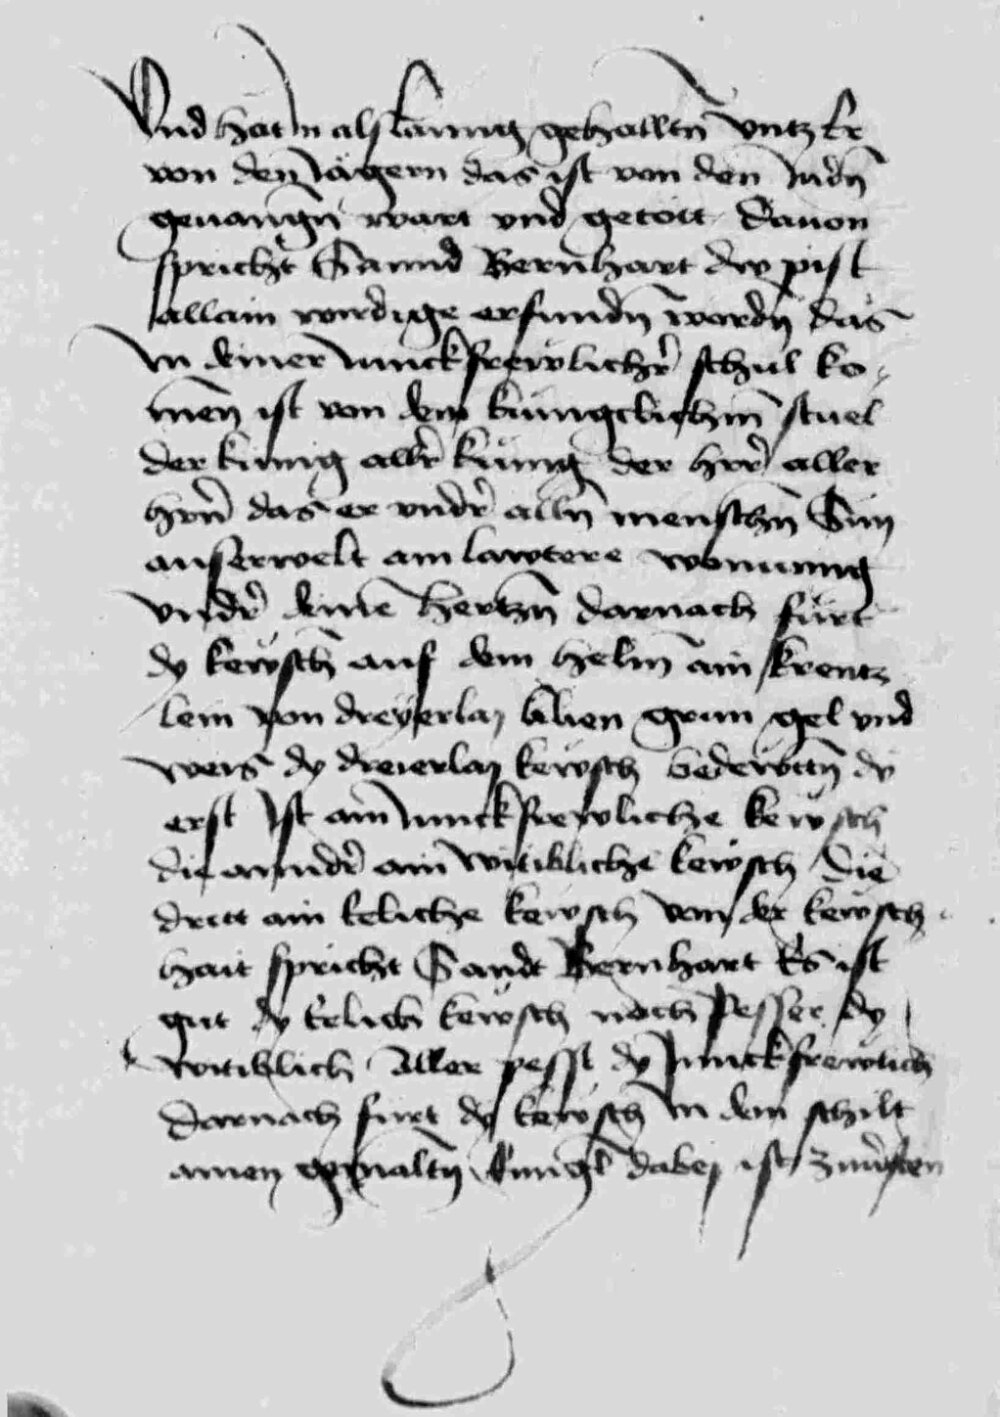 Vnd hat in als lanng gehalltn̄ vntz Er
von den Jägern das ist von den Judn̄
geuangn̄ wart vnd getött Dauon
spricht Sannd Bernhart dw pist
allain wirdige erfundn̄ wordn̄ das
in deiner Junckfrewlichr̄ schul ko-
men ist von dem kunigclichn̄ stuel
der kunig allr̄ kunig der hrr̄ aller
hrn̄ das er vndr̄ alln̄ menschn̄ Sun
auserwelt ain lawtere wonunng
vndr̄ deine hertzn̄ darnach fürt
dy kewsch auf dem helm ain krentz
lein von dreyerlay lilien grun gel vnd
weis dy dreierlay kewsch bedewttn̄ dy
erst Ist ain Junckfrewliche kewsch
die anndr̄ ain witibliche kewsch Die
dritt ain Eeliche kewsch von der kewsch
hait spricht Sandt Bernhart Es ist
gut dy Eelich kewsch noch Pesser dy
witiblich Aller pesst dy Junckfrewlich
Darnach fürt dy kewsch in dem schilt
ainen gemaltn̄ Enngl dabey ist